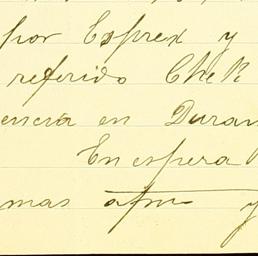 por Esprex y
referido Chek
encia en Duran
En espera
mas afmo y